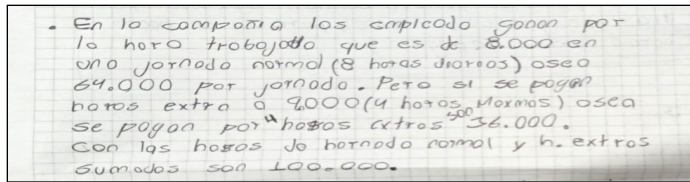 • En la compañia los empleado ganan por
la hora trabajada que es de 8.000 en
una jornada normal (8 horas diareas) osea
64.000 por jornada. Pero si se pagan
horas extra a 9000 (4 horas Maxmas) osea
se pagan por 4 horas extras son 36.000.
Con las horas de hornada normal y h. extras
sumadas son 100.000.